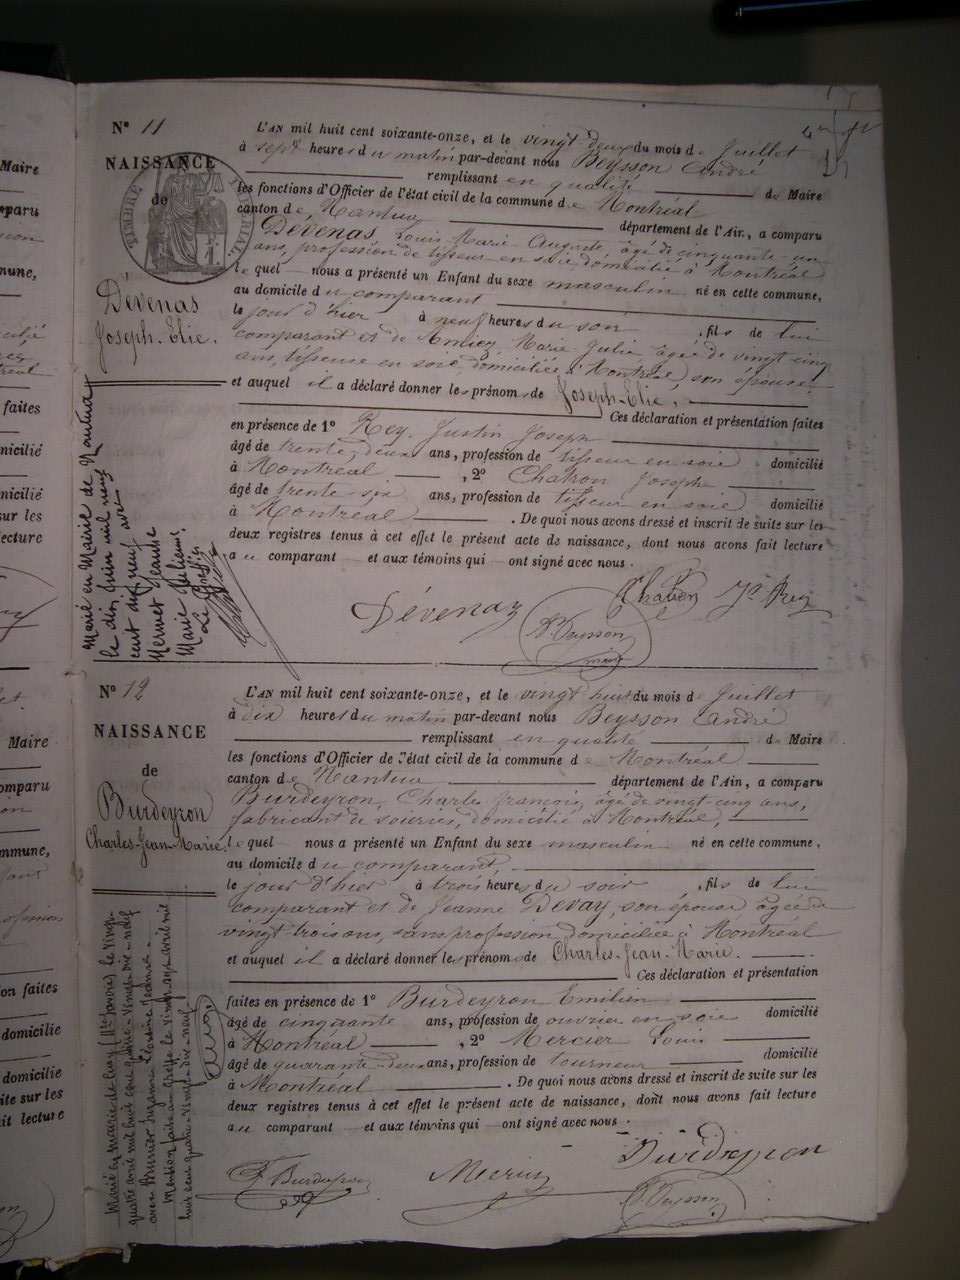 Nº 11
NAISSANCE
de
TIMBRE IMPÉRIAL
Dévenas
Joseph-Elie.
L'AN mil huit cent soixante-onze, et le vingt deux du mois de Juillet
à sept heures du matin par-devant nous Beysson André
remplissant en qualité de Maire
les fonctions d'Officier de l'état civil de la commune de Montréal
canton de Nantua département de l'Ain, a comparu
Dévenas, Louis Marie Auguste âgé de cinquante un
ans, profession de tisseur en soie domicilié à Montréal
lequel nous a présenté un Enfant du sexe masculin né en cette commune,
au domicile du comparant
le jour d'hier à neuf heures du soir, fils de lui
comparant et de Marie Julie âgée de vingt cinq
ans, tisseuse en soie, domiciliée à Montréal, son épouse
et auquel il a déclaré donner les prénoms de Joseph-Elie.
Ces déclaration et présentation faites
en présence de 1º Rey, Justin Joseph
âgé de trente deux ans, profession de tisseur en soie domicilié
à Montréal, 2º Chatron Joseph
âgé de trente six ans, profession de tisseur en soie domicilié
à Montréal. De quoi nous avons dressé et inscrit de suite sur les
deux registres tenus à cet effet le présent acte de naissance, dont nous avons fait lecture
au comparant et aux témoins qui ont signé avec nous.
Marié en Mairie de Nantua
le dix Juin mil neuf
cent dix neuf avec
Mermet
Marie
Dévenas Chatron Jh Rey
Beysson
maire
Nº 12
NAISSANCE
de
Burdeyron
Charles-Jean-Marie
L'AN mil huit cent soixante-onze, et le vingt huit du mois de Juillet
à dix heures du matin par-devant nous Beysson André
remplissant en qualité de Maire
les fonctions d'Officier de l'état civil de la commune de Montréal
canton de Nantua département de l'Ain, a comparu
Burdeyron, Charles françois, âgé de vingt cinq ans,
fabricant de domicilié à Montréal,
lequel nous a présenté un Enfant du sexe masculin né en cette commune,
au domicile du comparant,
le jour d'hier à trois heures du soir, fils de lui
comparant et de Jeanne Devay, son épouse âgée de
vingt trois ans, sans profession domiciliée à Montréal
et auquel il a déclaré donner les prénoms de Charles-Jean-Marie.
Ces déclaration et présentation
faites en présence de 1º Burdeyron Emilien
âgé de cinquante ans, profession de ouvrier en soie domicilié
à Montréal, 2º Mercier Louis
âgé de quarante deux ans, profession de tourneur domicilié
à Montréal. De quoi nous avons dressé et inscrit de suite sur les
deux registres tenus à cet effet le présent acte de naissance, dont nous avons fait lecture
au comparant et aux témoins qui ont signé avec nous.
Marié en mairie de le vingt-
quatre avril mil huit cent quatre-vingt-dix-neuf
avec Brunier Suzanne Jeanne
Mention faite au Greffe le vingt-sept avril mil
huit cent quatre-vingt-dix-neuf
Burdeyron
Burdeyron Mercier
Beysson
Maire
mparu
mune,
faites
micilié
micilié
sur les
lecture
Maire
omparu
mmune,
on faites
domicilié
domicilié
ite sur les
it lecture